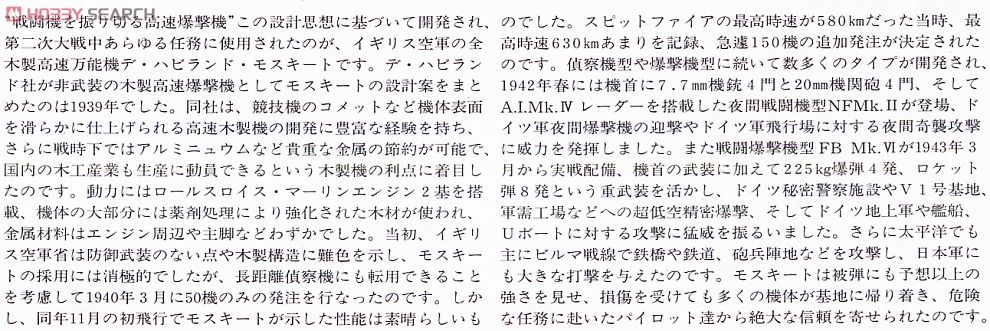 HOBBY SEARCH
"戦闘機を振り切る高速爆撃機"この設計思想に基づいて開発され、
第二次大戦中あらゆる任務に使用されたのが、イギリス空軍の全
木製高速万能機デ・ハビランド・モスキートです。デ・ハビラン
ド社が非武装の木製高速爆撃機としてモスキートの設計案をまと
めたのは1939年でした。同社は、競技機のコメットなど機体表面
を滑らかに仕上げられる高速木製機の開発に豊富な経験を持ち、
さらに戦時下ではアルミニュウムなど貴重な金属の節約が可能で、
国内の木工産業も生産に動員できるという木製機の利点に着目し
たのです。動力にはロールスロイス・マーリンエンジン2基を搭
載、機体の大部分には薬剤処理により強化された木材が使われ、
金属材料はエンジン周辺や主脚などわずかでした。当初、イギリ
ス空軍省は防御武装のない点や木製構造に難色を示し、モスキー
トの採用には消極的でしたが、長距離偵察機にも転用できること
を考慮して1940年3月に50機のみの発注を行なったのです。しか
し、同年11月の初飛行でモスキートが示した性能は素晴らしいも
のでした。スピットファイアの最高時速が580㎞だった当時、最
高時速630㎞あまりを記録、急遽150機の追加発注が決定された
のです。偵察機型や爆撃機型に続いて数多くのタイプが開発され、
1942年春には機首に7.7㎜機銃4門と20㎜機関砲4門、そして
A.I.Mk.Ⅳ レーダーを搭載した夜間戦闘機型NFMk.Ⅱが登場、ド
イツ軍夜間爆撃機の迎撃やドイツ軍飛行場に対する夜間奇襲攻撃
に威力を発揮しました。また戦闘爆撃機型 FB Mk.Ⅵが1943年3
月から実戦配備、機首の武装に加えて225㎏爆弾4発、ロケット
弾8発という重武装を活かし、ドイツ秘密警察施設やV1号基地、
軍需工場などへの超低空精密爆撃、そしてドイツ地上軍や艦船、
Uボートに対する攻撃に猛威を振るいました。さらに太平洋でも
主にビルマ戦線で鉄橋や鉄道、砲兵陣地などを攻撃し、日本軍に
も大きな打撃を与えたのです。モスキートは被弾にも予想以上の
強さを見せ、損傷を受けても多くの機体が基地に帰り着き、危険
な任務に赴いたパイロット達から絶大な信頼を寄せられたのです。